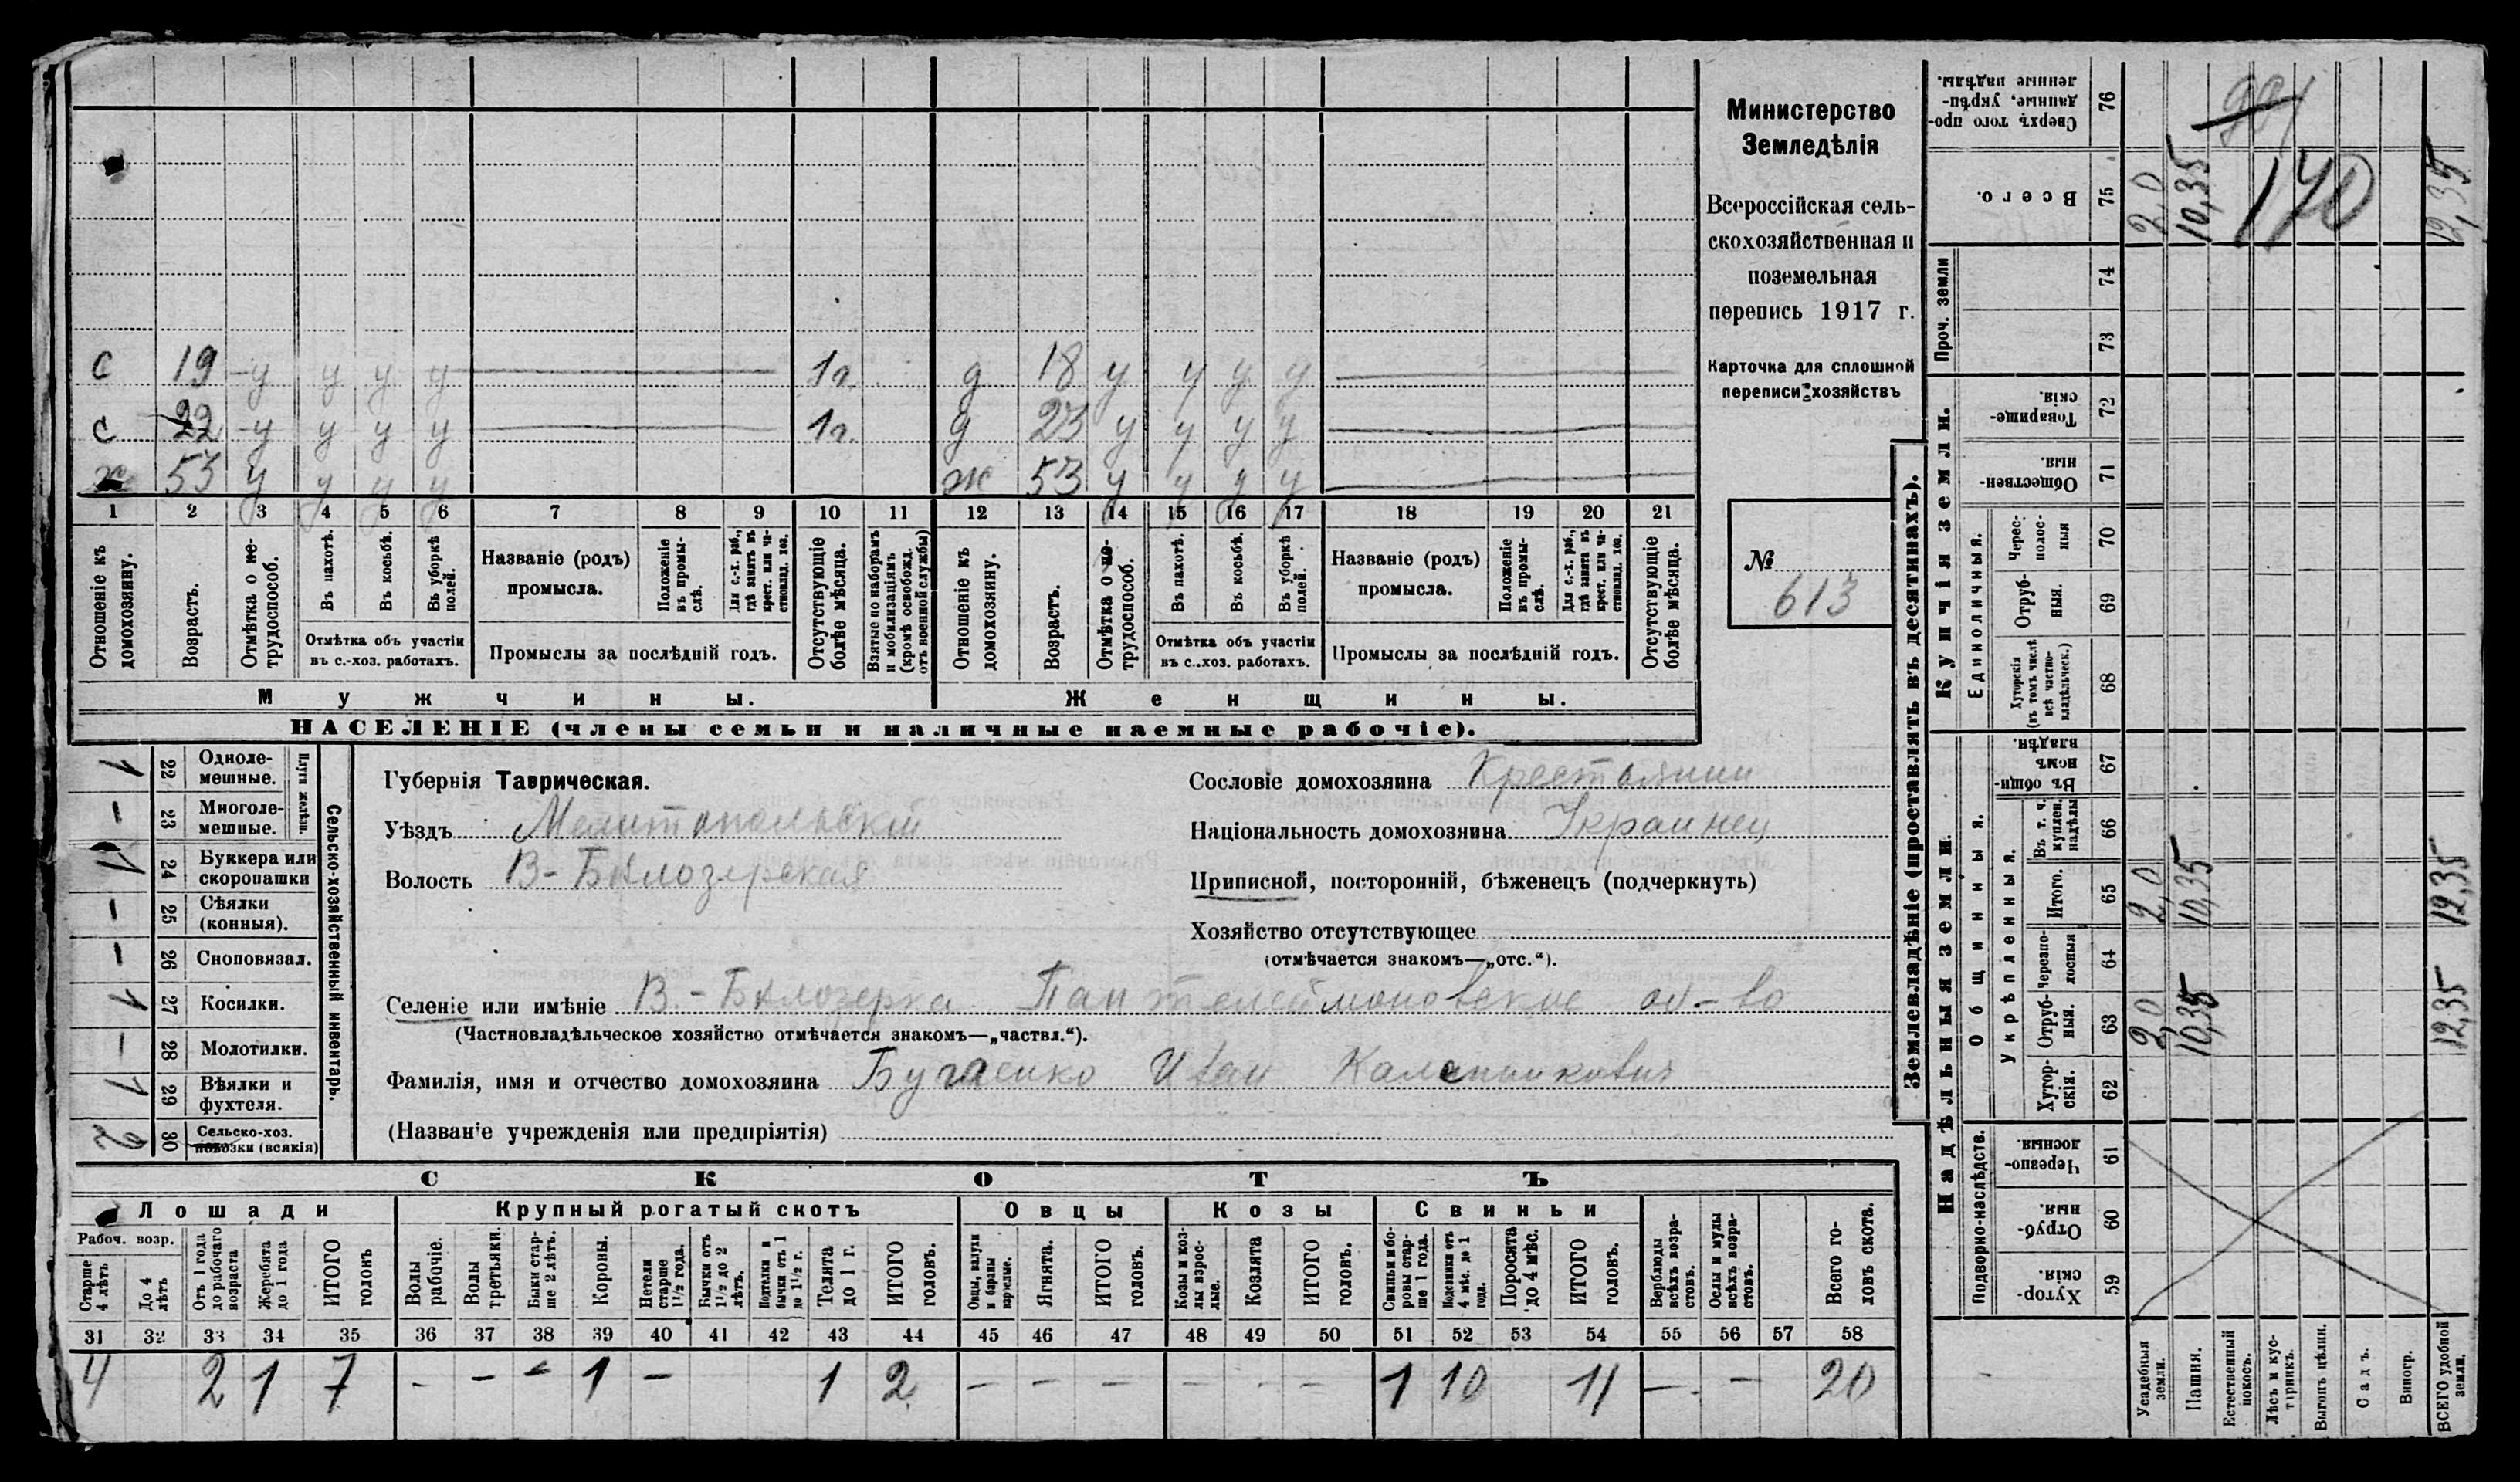 Министерство
Земледѣлія
Всероссійская сель-
скохозяйственная и
поземельная
перепись 1917 г.
Карточка для сплошной
переписи хозяйствъ
№
613
с 19 у у у у 1г. д 18 у у у у
с 22 у у у у 1г. д 23 у у у у
х 53 у у у у ж 53 у у у у
1 2 3 4 5 6 7 8 9 10 11 12 13 14 15 16 17 18 19 20 21
Отношеніе къ домохозяину.
Возрастъ.
Отмѣтка о не-трудоспособ.
Въ пахотѣ.
Въ косьбѣ.
Въ уборкѣ полей.
Отмѣтка объ участіи въ с.-хоз. работахъ.
Названіе (родъ) промысла.
Положеніе въ промы-слѣ.
Для с.-х. раб., гдѣ занятъ въ крест. или ча-стновлад. хоз.
Промыслы за послѣдній годъ.
Отсутствующіе болѣе мѣсяца.
Взятые по наборамъ и мобилизаціямъ (кромѣ освобожд. отъ военной службы)
Отношеніе къ домохозяину.
Возрастъ.
Отмѣтка о не-трудоспособ.
Въ пахотѣ.
Въ косьбѣ.
Въ уборкѣ полей.
Отмѣтка объ участіи въ с..хоз. работахъ.
Названіе (родъ) промысла.
Положеніе въ промы-слѣ.
Для с.-х. раб., гдѣ занятъ въ крест. или ча-стновлад. хоз.
Промыслы за послѣдній годъ.
Отсутствующіе болѣе мѣсяца.
Мужчины.
Женщины.
НАСЕЛЕНІЕ (члены семьи и наличные наемные рабочіе).
Сельско-хозяйственный инвентарь.
Плуги желѣзн.
1 22 Одноле-мешные.
— 23 Многоле-мешные.
1 24 Буккера или скоропашки
— 25 Сѣялки (конныя).
— 26 Сноповязал.
1 27 Косилки.
— 28 Молотилки.
1 29 Вѣялки и фухтеля.
2 30 Сельско-хоз. повозки (всякія)
Губернія Таврическая.
Уѣздъ Мелитопольскій
Волость В-Бѣлозерская
Сословіе домохозяина Крестьянин
Національность домохозяина Украинец
Приписной, посторонній, бѣженец (подчеркнуть)
Хозяйство отсутствующее
(отмѣчается знакомъ—„отс.“).
Селеніе или имѣніе В.-Бѣлозерка Пантелеймоновское об-во
(Частновладѣльческое хозяйство отмѣчается знакомъ—„частвл.“).
Фамилія, имя и отчество домохозяина Бугаенко Иван Каленикович
(Названіе учрежденія или предпріятія)
СКОТЪ
Лошади
Крупный рогатый скотъ
Овцы
Козы
Свиньи
Рабоч. возр.
Старше 4 лѣтъ
До 4 лѣтъ
Отъ 1 года до рабочаго возраста
Жеребята до 1 года
ИТОГО головъ
Волы рабочіе.
Волы третьяки.
Быки стар-ше 2 лѣтъ.
Коровы.
Нетели старше 1½ года.
Бычки отъ 1½ до 2 лѣтъ.
Подтелки и бычки отъ 1 до 1½ г.
Телята до 1 г.
ИТОГО головъ.
Овцы, валухи и бараны взрослые.
Ягнята.
ИТОГО головъ.
Козы и коз-лы взрос-лые.
Козлята
ИТОГО головъ.
Свиньи и бо-ровы стар-ше 1 года.
Подсвинки отъ 4 мѣс. до 1 года.
Поросята до 4 мѣс.
ИТОГО головъ.
Верблюды всѣхъ возра-стовъ.
Ослы и мулы всѣхъ возра-стовъ.
Всего го-ловъ скота.
31 32 33 34 35 36 37 38 39 40 41 42 43 44 45 46 47 48 49 50 51 52 53 54 55 56 57 58
4 2 1 7 - - - 1 - 1 2 - - - - - - 1 10 11 - - 20
Землевладѣніе (проставлять въ десятинахъ).
Надѣльныя земли.
Купчія земли.
Проч. земли
Подворно-наслѣдств.
Общинныя.
Укрѣпленныя.
Единоличныя.
59 Хутор-скія.
60 Отруб-ныя.
61 Черезпо-лосныя.
62 Хутор-скія.
63 Отруб-ныя. 2,0 10,35 12,35
64 Черезпо-лосныя
65 Итого. 2,0 10,35 12,35
66 Въ т. ч. куплен. надѣлы
67 Въ общин-номъ владѣн.
68 Хуторскія (въ томъ числѣ всѣ частно-владѣльческ.)
69 Отруб-ныя.
70 Черес-полос-ныя
71 Обществен-ныя.
72 Товарище-скія.
73
74
75 Всего. 2,0 10,35 170 12,35
76 Сверхъ того про-данные, укрѣп-ленные надѣлы.
Усадебныя земли.
Пашня.
Естественный покосъ.
Лѣсъ и кус-тарникъ.
Выгонъ цѣлин.
Садъ.
Виногр.
ВСЕГО удобной земли.